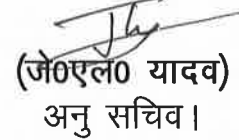 (जे०एल० यादव)
अनु सचिव।